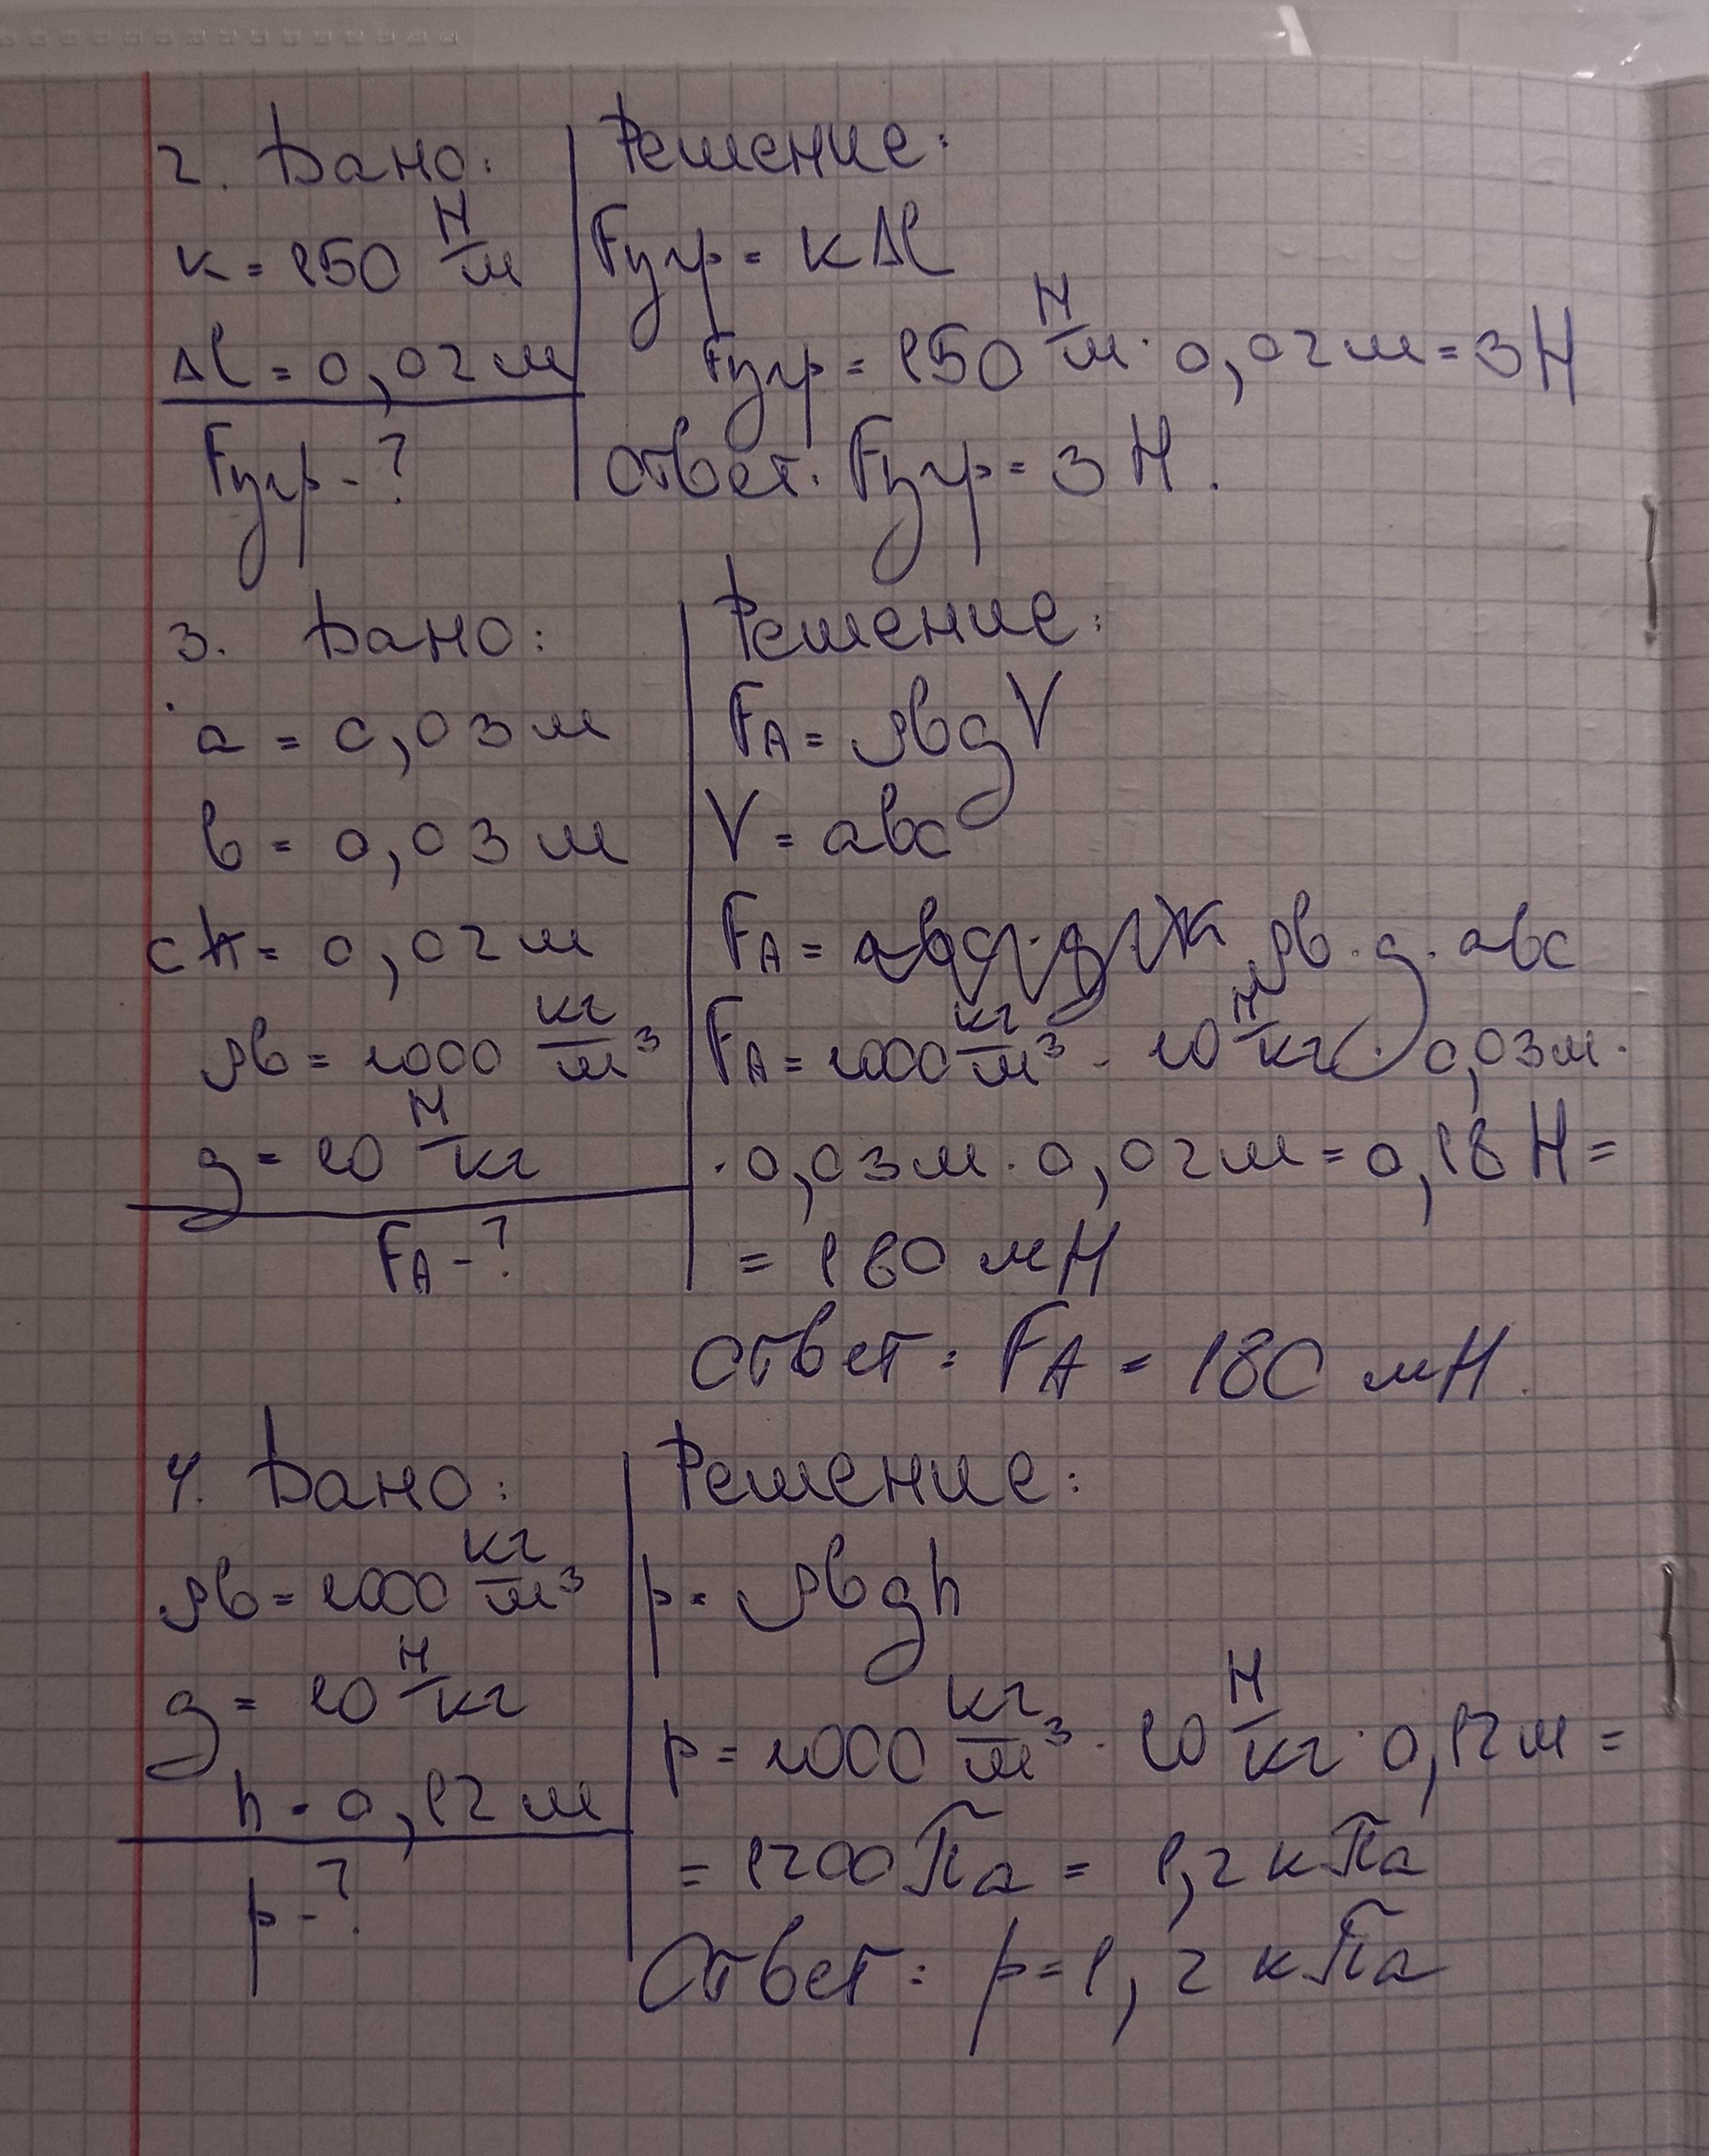 2. Дано:
k = 150 Н/м
Δl = 0,02 м
Fупр - ?
Решение:
Fупр = kΔl
Fупр = 150 Н/м · 0,02 м = 3 Н
Ответ: Fупр = 3 Н.
3. Дано:
a = 0,03 м
b = 0,03 м
c = 0,02 м
ρв = 1000 кг/м³
g = 10 Н/кг
FА - ?
Решение:
FА = ρвgV
V = abc
FА = ρв · g · abc
FА = 1000 кг/м³ · 10 Н/кг · 0,03 м ·
· 0,03 м · 0,02 м = 0,18 Н =
= 180 мН
Ответ: FА = 180 мН.
4. Дано:
ρв = 1000 кг/м³
g = 10 Н/кг
h = 0,12 м
p - ?
Решение:
p = ρвgh
p = 1000 кг/м³ · 10 Н/кг · 0,12 м =
= 1200 Па = 1,2 кПа
Ответ: p = 1,2 кПа